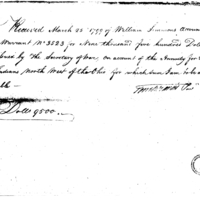 Received March 22d 1799 of William Simmons accom
Warrant No 3523 for Nine thousand five hundred Doll
by the Secretary of War on account of the Annuity for
Indians North West of the Ohio for which sum I am to be
Dolls 9500.